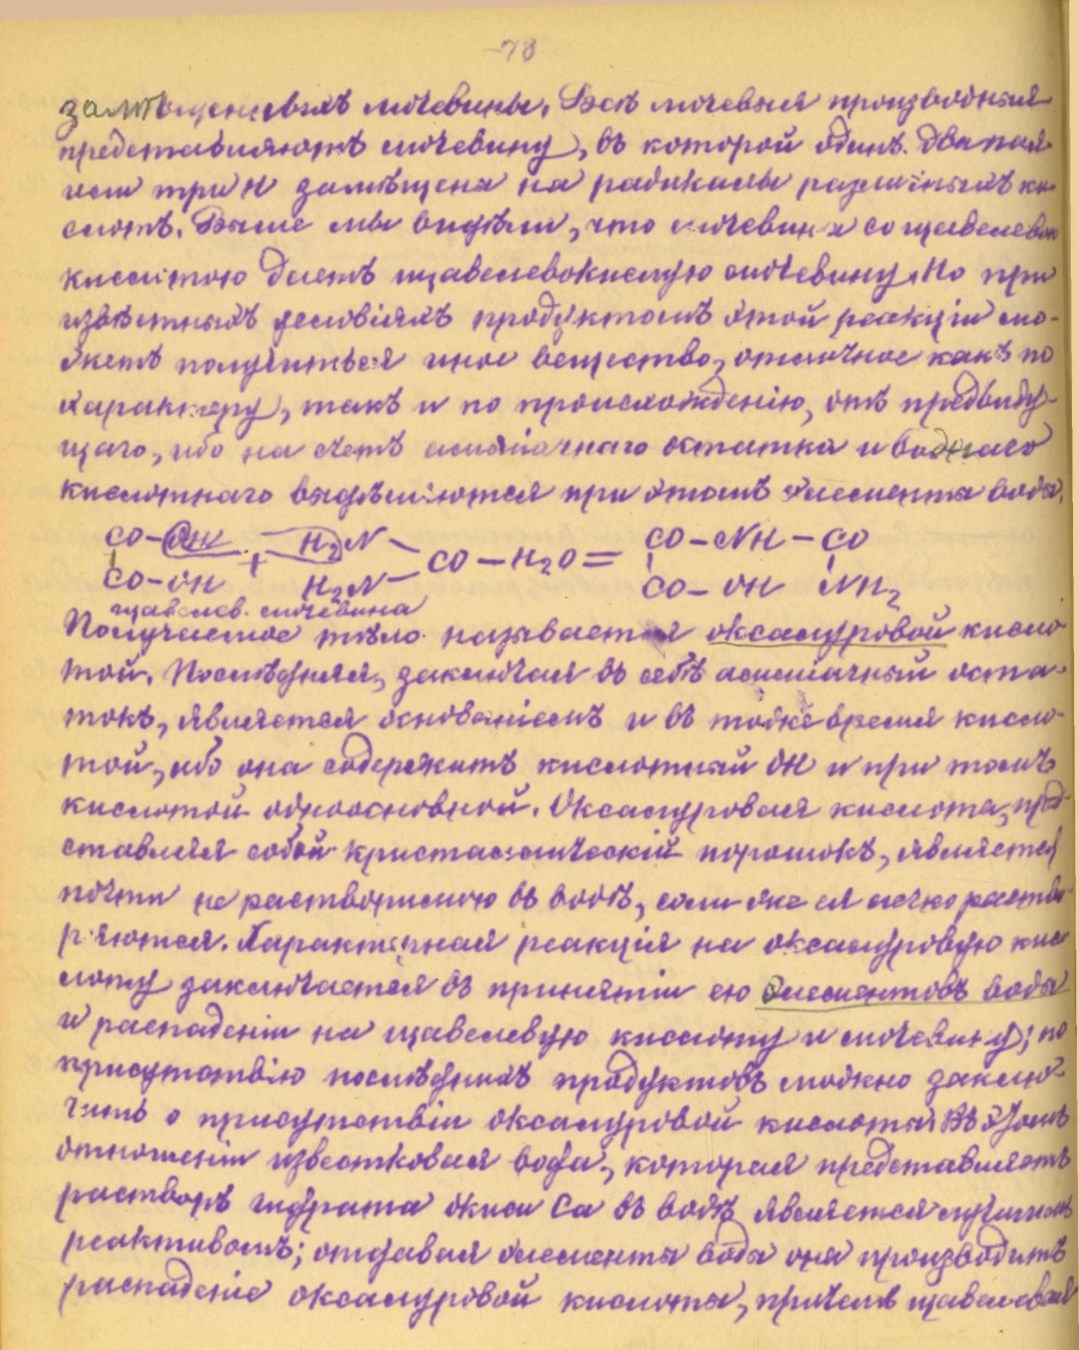 -78
замѣщенныхъ мочевины. Всѣ мочевыя производныя
представляютъ мочевину, въ которой одинъ. два
или три H замѣщена на радикалы различныхъ ки-
слотъ. Выше мы видѣли, что мочевина со щавелевою
кислотою даетъ щавелевокислую мочевину. Но при
извѣстныхъ условіяхъ продуктомъ этой реакціи мо-
жетъ получиться иное вещество, отличное какъ по
характеру, такъ и по происхожденію, отъ предъиду-
щаго, ибо на счетъ амміачнаго остатка и воднаго
кислотнаго выдѣляются при этомъ элементы воды.
CO-OH + H2N - CO - H2O = CO - NH - CO
CO-OH H2N CO - OH NH2
щавелев. мочевина
Получаемое тѣло называется оксалуровой кисло
той. Послѣдняя, заключая въ себѣ амміачный оста-
токъ, является основаніемъ и въ тоже время кисло-
той, ибо она содержитъ кислотный OH и при томъ
кислотой одноосновной. Оксалуровая кислота, пред-
ставляя собой кристаллическій порошокъ, является
почти не растворимою въ водѣ, соли же ея легко раство
ряются. Характерная реакція на оксалуровую кис
лоту заключается въ принятіи ею элементовъ воды
и распаденіи на щавелевую кислоту и мочевину; по
присутствію послѣднихъ продуктовъ можно заклю-
чить о присутствіи оксалуровой кислоты. Въ этомъ
отношеніи известковая вода, которая представляетъ
растворъ гидрата окиси Ca въ водѣ является лучшимъ
реактивомъ; отдавая элементы воды она производитъ
распаденіе оксалуровой кислоты, причемъ щавелевая